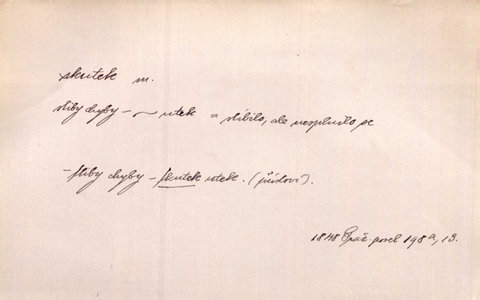 skutek m.
sliby chyby – ~ utek = slíbilo, ale nesplnilo se
– sliby chyby – skutek utek. (přísloví).
1848 Praž. posel 198a, 13.